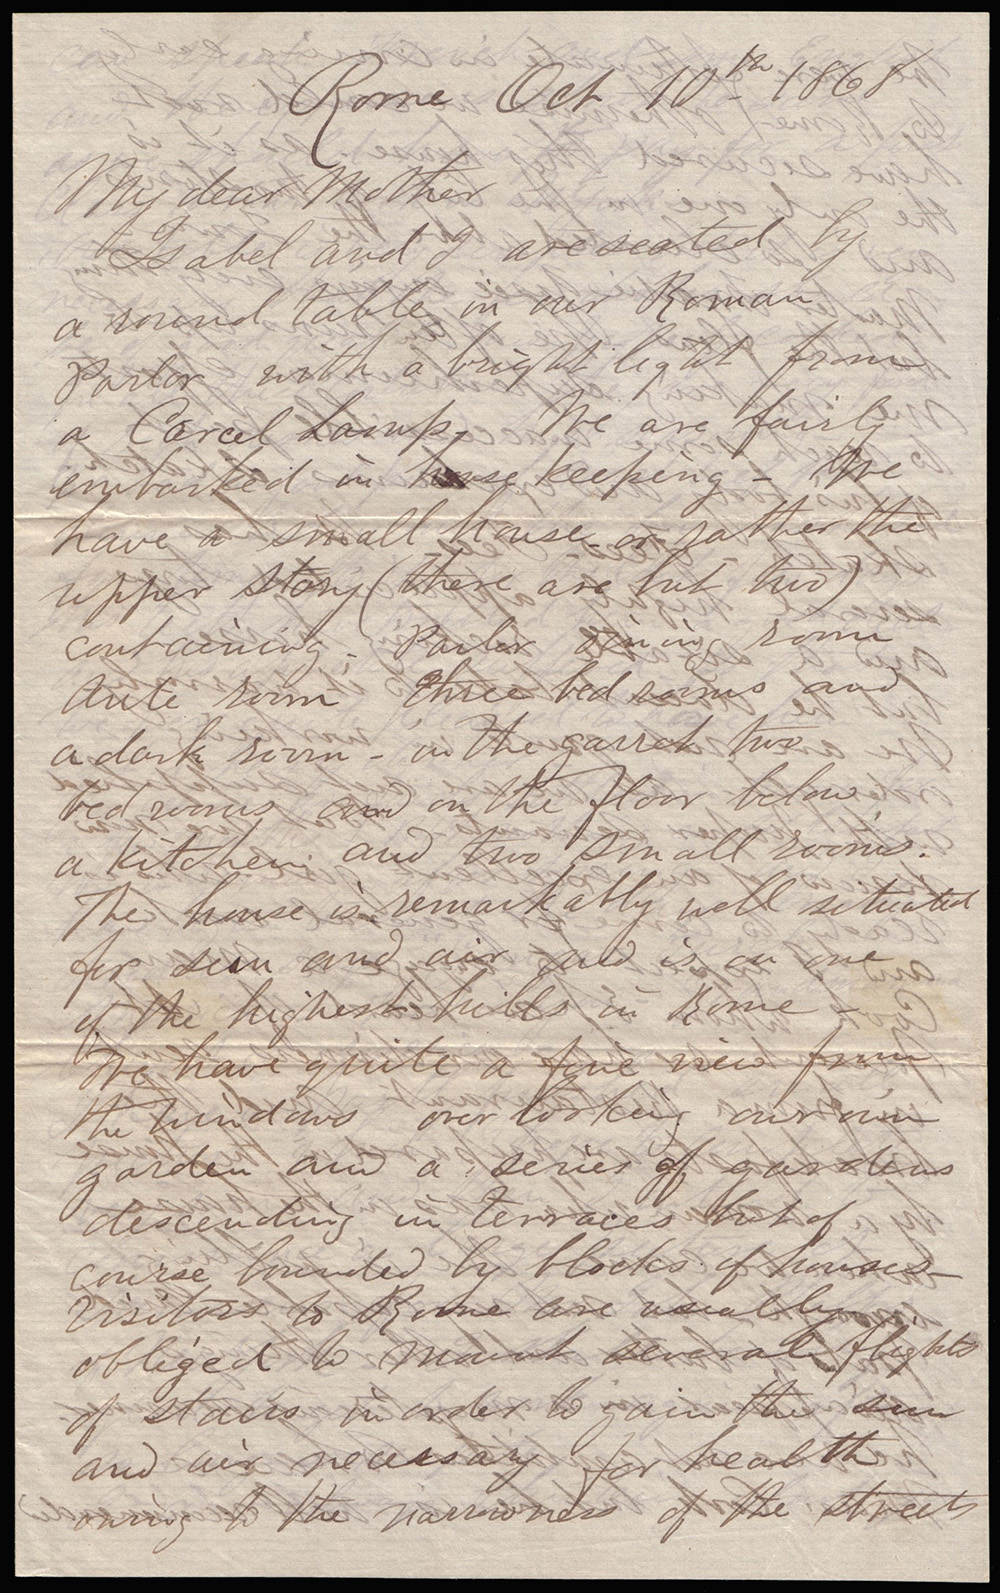 Rome Oct 10th 1868
My dear Mother
Isabel and I are seated by
a round table in our Roman
Parlor with a bright light from
a Carcel Lamp. We are fairly
embarked in house keeping - We
have a small house or rather the
upper story (there are but two)
containing - Parlor dining room
Ante room three bed rooms and
a dark room - in the garret two
bed rooms and on the floor below
a kitchen and two small rooms.
The house is remarkably well situated
for sun and air and is on one
of the highest hills in Rome -
We have quite a fine view from
the windows over looking our own
garden and a series of gardens
descending in terraces but of
course bounded by blocks of houses -
Visitors to Rome are usually
obliged to mount several flights
of stairs in order to gain the sun
and air necessary for health
owing to the narrowness of the streets